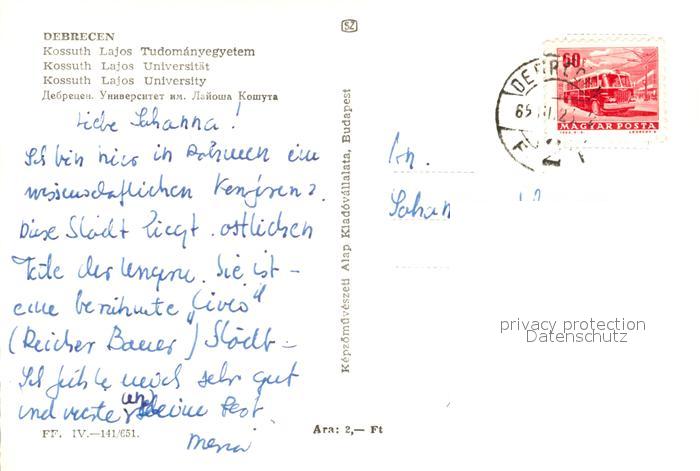 DEBRECEN
Kossuth Lajos Tudományegyetem
Kossuth Lajos Universität
Kossuth Lajos University
Дебрецен. Университет им. Лайоша Кошута
Liebe Johanna!
Ich bin hier in Rahmen eine
wissenschaftlichen Konferenz.
Diese Stadt liegt östlichen
Teile der Ungarn. Sie ist -
eine berühmte „Civis"
(Reicher Bauer) Stadt -
Ich fühle mich sehr gut
und
FF. IV.—141/651.
Ára: 2,— Ft
Képzőművészeti Alap Kiadóvállalata, Budapest
SZ
60f
MAGYAR POSTA
DEBRECEN
privacy protection
Datenschutz